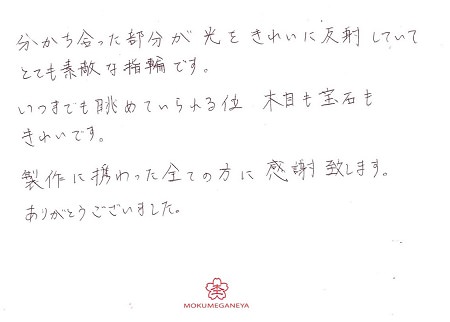 分かち合った部分が光をきれいに反射していて
とても素敵な指輪です。
いつまでも眺めていられる位 木目も宝石も
きれいです。
製作に携わった全ての方に感謝致します。
ありがとうございました。
MOKUMEGANEYA